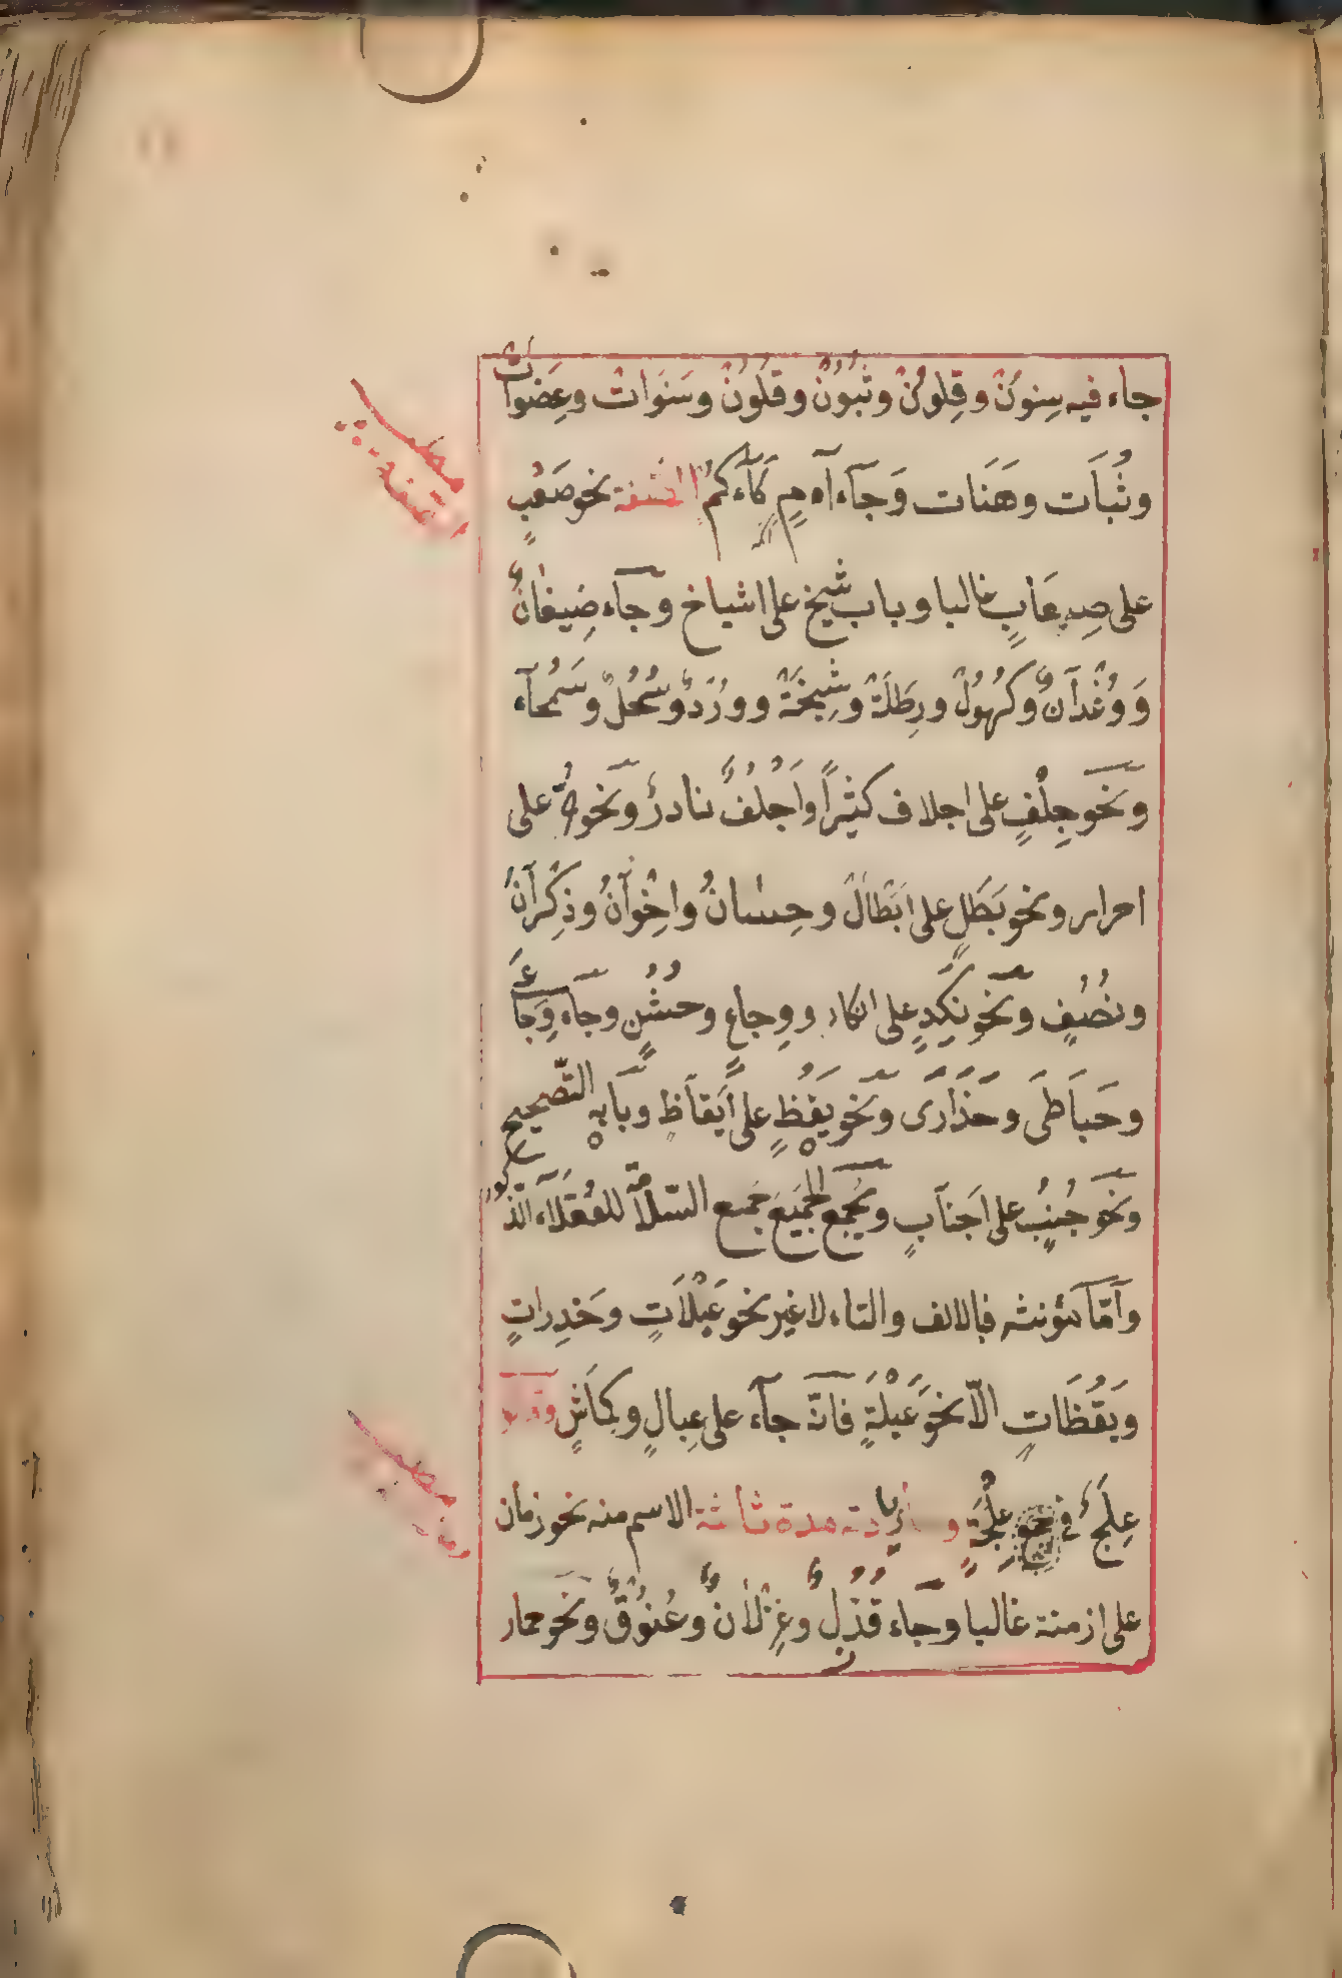 جاء فيه سِنوُنْ وقِلوُنْ وثُبُونْ وقُلُونْ وسَنَوَاتْ وعِضَوات
وثُبَات وهَنَات وَجَآء آمٍ كَآكمُ الصفة نحو صَعْبٍ
على صِعَابٍ غالبا وباب شيخ على اشياخ وجآء ضِيفانٌ
وَوُغْدَانٌ وكُهُولٌ ورِطَلَةٌ وشِيخَةٌ ووُرْدٌ وسُحُلٌ وسُمَحآء
ونحَو جِلْفٍ على اجلاف كثيراً واَجْلُفٌ نادرٌ ونحو حُرٍّ على
احرار ونحو بَطَلٍ على ابْطَالٌ وحِسَانٌ واخْوَانٌ وذُكْرَانٌ
ونُصُفٍ ونحو نَكِدٍ على انكاد ووِجاعٍ وخُشُنٍ وجآء وَجَاعَى
وحَبَاطَى وحَذَارَى ونحو يَقُظٍ على اَيقَاظٍ وبَابهِ التّصحيح
ونحو جُنُبٍ على اَجنَابٍ ويُجمَع الجَمِيَع جَمع السّلامَّة للعُقَلَاء الذّكور
وَاَمّا مؤنثه فبالالف والتاء لا غير نحو عَبْلَاتٍ وحَذِراتٍ
ويَقُظَاتٍ الّا نحوَ عَبْلَةٍ فانّه جآء على عِبالٍ وكِمَاشٍ وقالوا
عِلَجٌ فى نحو عِلْجَةٍ وما زيادته مدة ثالثة الاسم منه نحو زمان
على ازمنة غالبا وجآء قُذُلٌ وغِزْلَانٌ وعُنوُقٌ ونحَو حمار